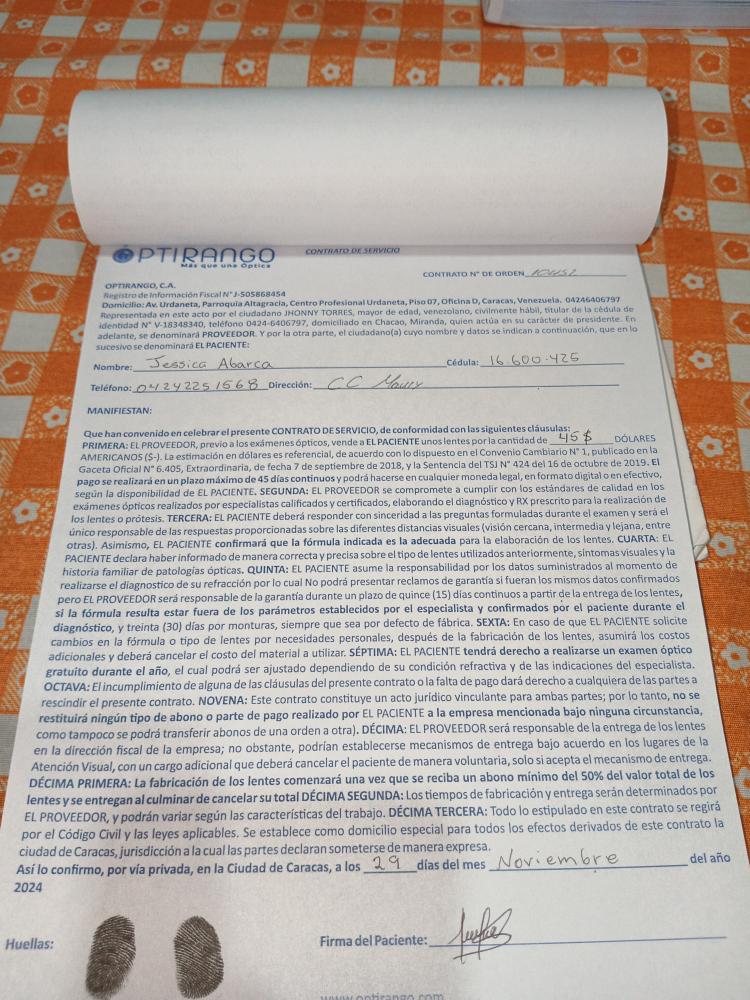 OPTIRANGO
Más que una Óptica
CONTRATO DE SERVICIO
CONTRATO N° DE ORDEN
OPTIRANGO, C.A.
Registro de Información Fiscal N° J-505868454
Domicilio: Av. Urdaneta, Parroquia Altagracia, Centro Profesional Urdaneta, Piso 07, Oficina D, Caracas, Venezuela. 04246406797
Representada en este acto por el ciudadano JHONNY TORRES, mayor de edad, venezolano, civilmente hábil, titular de la cédula de
identidad N° V-18348340, teléfono 0424-6406797, domiciliado en Chacao, Miranda, quien actúa en su carácter de presidente. En
adelante, se denominará PROVEEDOR. Y por la otra parte, el ciudadano(a) cuyo nombre y datos se indican a continuación, que en lo
sucesivo se denominará EL PACIENTE:
Nombre: Jessica Abarca Cédula: 16.600.425
Teléfono: 04242251568 Dirección: CC
MANIFIESTAN:
Que han convenido en celebrar el presente CONTRATO DE SERVICIO, de conformidad con las siguientes cláusulas:
PRIMERA: EL PROVEEDOR, previo a los exámenes ópticos, vende a EL PACIENTE unos lentes por la cantidad de 45$ DÓLARES
AMERICANOS ($-). La estimación en dólares es referencial, de acuerdo con lo dispuesto en el Convenio Cambiario N° 1, publicado en la
Gaceta Oficial N° 6.405, Extraordinaria, de fecha 7 de septiembre de 2018, y la Sentencia del TSJ N° 424 del 16 de octubre de 2019. El
pago se realizará en un plazo máximo de 45 días continuos y podrá hacerse en cualquier moneda legal, en formato digital o en efectivo,
según la disponibilidad de EL PACIENTE. SEGUNDA: EL PROVEEDOR se compromete a cumplir con los estándares de calidad en los
exámenes ópticos realizados por especialistas calificados y certificados, elaborando el diagnóstico y RX prescrito para la realización de
los lentes o prótesis. TERCERA: EL PACIENTE deberá responder con sinceridad a las preguntas formuladas durante el examen y será el
único responsable de las respuestas proporcionadas sobre las diferentes distancias visuales (visión cercana, intermedia y lejana, entre
otras). Asimismo, EL PACIENTE confirmará que la fórmula indicada es la adecuada para la elaboración de los lentes. CUARTA: EL
PACIENTE declara haber informado de manera correcta y precisa sobre el tipo de lentes utilizados anteriormente, síntomas visuales y la
historia familiar de patologías ópticas. QUINTA: EL PACIENTE asume la responsabilidad por los datos suministrados al momento de
realizarse el diagnostico de su refracción por lo cual No podrá presentar reclamos de garantía si fueran los mismos datos confirmados
pero EL PROVEEDOR será responsable de la garantía durante un plazo de quince (15) días continuos a partir de la entrega de los lentes,
si la fórmula resulta estar fuera de los parámetros establecidos por el especialista y confirmados por el paciente durante el
diagnóstico, y treinta (30) días por monturas, siempre que sea por defecto de fábrica. SEXTA: En caso de que EL PACIENTE solicite
cambios en la fórmula o tipo de lentes por necesidades personales, después de la fabricación de los lentes, asumirá los costos
adicionales y deberá cancelar el costo del material a utilizar. SÉPTIMA: EL PACIENTE tendrá derecho a realizarse un examen óptico
gratuito durante el año, el cual podrá ser ajustado dependiendo de su condición refractiva y de las indicaciones del especialista.
OCTAVA: El incumplimiento de alguna de las cláusulas del presente contrato o la falta de pago dará derecho a cualquiera de las partes a
rescindir el presente contrato. NOVENA: Este contrato constituye un acto jurídico vinculante para ambas partes; por lo tanto, no se
restituirá ningún tipo de abono o parte de pago realizado por EL PACIENTE a la empresa mencionada bajo ninguna circunstancia,
como tampoco se podrá transferir abonos de una orden a otra). DÉCIMA: EL PROVEEDOR será responsable de la entrega de los lentes
en la dirección fiscal de la empresa; no obstante, podrían establecerse mecanismos de entrega bajo acuerdo en los lugares de la
Atención Visual, con un cargo adicional que deberá cancelar el paciente de manera voluntaria, solo si acepta el mecanismo de entrega.
DÉCIMA PRIMERA: La fabricación de los lentes comenzará una vez que se reciba un abono mínimo del 50% del valor total de los
lentes y se entregan al culminar de cancelar su total DÉCIMA SEGUNDA: Los tiempos de fabricación y entrega serán determinados por
EL PROVEEDOR, y podrán variar según las características del trabajo. DÉCIMA TERCERA: Todo lo estipulado en este contrato se regirá
por el Código Civil y las leyes aplicables. Se establece como domicilio especial para todos los efectos derivados de este contrato la
ciudad de Caracas, jurisdicción a la cual las partes declaran someterse de manera expresa.
Así lo confirmo, por vía privada, en la Ciudad de Caracas, a los 29 días del mes Noviembre del año
2024
Huellas:
Firma del Paciente:
www.optirango.com